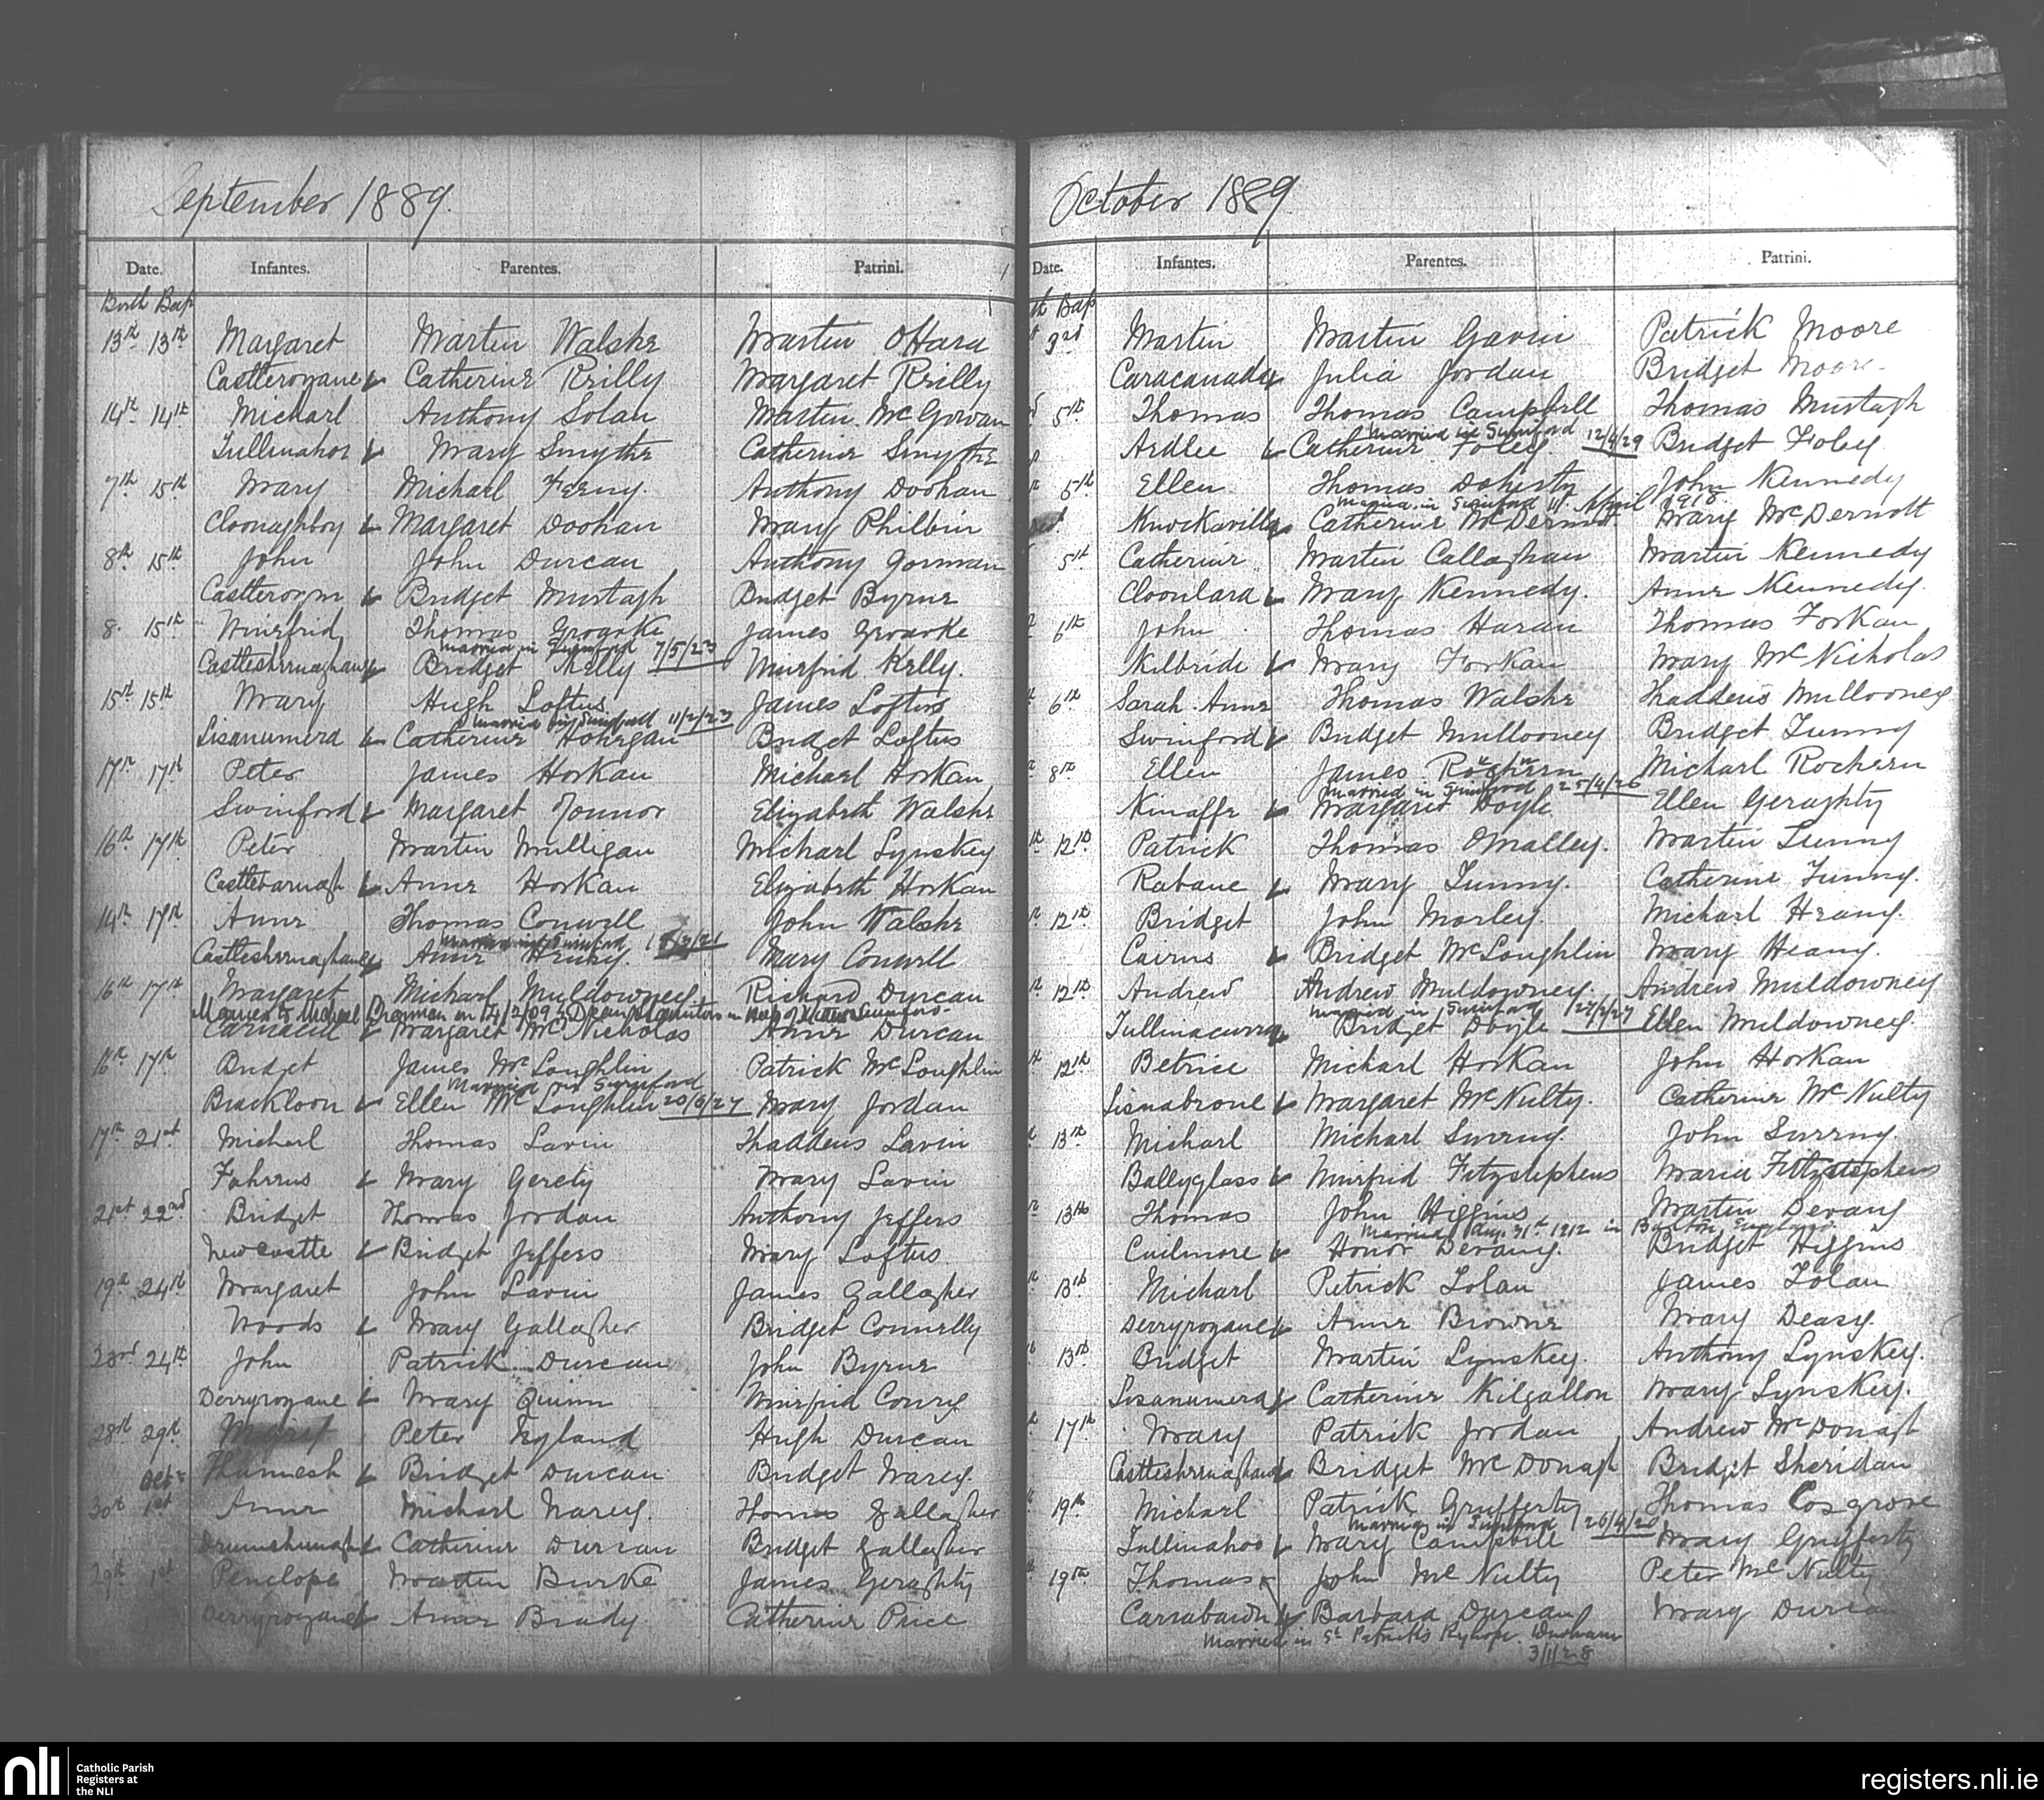 September 1889.
Date. Infantes. Parentes. Patrini.
Birth Bap
13th 13th Margaret Martin Walshe Martin OHara
Castleroyane & Catherine Reilly Margaret Reilly
14th 14th Michael Anthony Solan Martin McGowan
Tullinahoe & Mary Smythe Catherine Smythe
7th 15th Mary Michael Feeny. Anthony Doohan
Cloonaghboy & Margaret Doohan Mary Philbin
8th 15th John John Durcan Anthony Gorman
& Bridget Murtagh Bridget Byrne
8. 15th Winefrid Thomas Groarke James Groarke
Married in Swinford 7/5/23
& Bridget Kelly Winefrid Kelly.
15th 15th Mary Hugh Loftus James Loftus
Married in Swinford 11/2/23
Lisanumera & Catherine Horkan Bridget Loftus
17th 17th Peter James Horkan Michael Horkan
Swinford & Margaret OConnor Elizabeth Walshe
16th 17th Peter Martin Mulligan Michael Lynskey
Castlebarnagh & Anne Horkan Elizabeth Horkan
14th 17th Anne Thomas Conwell John Walshe
Married in Swinford
& Anne Henry. Mary Conwell
16th 17th Margaret Michael Muldowney Richard Durcan
Married to Michael in 14/2/09
& Margaret McNicholas Anne Durcan
16th 17th Bridget James McLoughlin Patrick McLoughlin
Married in Swinford
Brackloon & Ellen McLoughlin 20/6/27 Mary Jordan
17th 21st Michael Thomas Lavin Thaddeus Lavin
Faheens & Mary Gerety Mary Lavin
21st 22nd Bridget Thomas Jordan Anthony Jeffers
Newcastle & Bridget Jeffers Mary Loftus.
19th 24th Margaret John Lavin James Gallagher
Woods & Mary Gallagher Bridget Connelly
23rd 24th John Patrick Durcan John Byrne
Derryroyane & Mary Quinn Winefrid Conry
28th 29th Peter Nyland Hugh Durcan
& Bridget Durcan Bridget Narey.
Oct.
30th 1st Anne Michael Narey. Thomas Gallagher
& Catherine Durcan Bridget Gallagher
29th 1st Penelope Martin Burke James Geraghty
Derryroyane & Anne Brady. Catherine Price
October 1889
Date. Infantes. Parentes. Patrini.
th Bap
3rd Martin Martin Gavin Patrick Moore
Caracanada & Julia Jordan Bridget Moore
5th Thomas Thomas Campbell Thomas Murtagh
Married in Swinford 12/6/29
Ardlee & Catherine Foley. Bridget Foley
5th Ellen Thomas Doherty John Kennedy
Married in Swinford April 1918
Knockavilla & Catherine McDermott. Mary McDermott
5th Catherine Martin Callaghan Martin Kennedy
Cloonlara & Mary Kennedy. Anne Kennedy.
6th John Thomas Haran Thomas Forkan
Kilbride & Mary Forkan Mary McNicholas
6th Sarah Anne Thomas Walshe Thaddeus Mullooney
Swinford & Bridget Mullooney Bridget Tunny
8th Ellen James Rocheen Michael Rocheen
Married in Swinford 25/4/26
Kinaffe & Margaret Doyle Ellen Geraghty
12th Patrick Thomas OMalley. Martin Tunny
Rabane & Mary Tunny. Catherine Tunny.
12th Bridget John Morley. Michael Heany.
Cairns & Bridget McLoughlin Mary Heany.
12th Andrew Andrew Muldowney. Andrew Muldowney
Married in Swinford
Tullinacurra & Bridget Doyle Ellen Muldowney.
12th Betrice Michael Horkan John Horkan
Lisnabrone & Margaret McNulty. Catherine McNulty
13th Michael Michael Sweeny. John Sweeny.
Ballyglass & Winefrid Fitzstephens Maria Fitzstephens
13th Thomas John Higgins Martin Devany
Married Aug. 31st 1912 in England
Cuilmore & Honor Devany. Bridget Higgins
13th Michael Patrick Solan James Solan
Derryroyane & Anne Browne Mary Deasy.
13th Bridget Martin Lynskey. Anthony Lynskey.
Lisanumera & Catherine Kilgallon Mary Lynskey.
17th Mary Patrick Jordan Andrew McDonagh
& Bridget McDonagh Bridget Sheridan
19th Michael Patrick Grufferty Thomas Cosgrove
Married in Swinford
Tullinahoe & Mary Campbell Mary Grufferty
19th Thomas John McNulty Peter McNulty
& Barbara Durcan Mary Durcan
Married in St Patricks Ryhope. Durham
3/11/28
nli
Catholic Parish
Registers at
the NLI
registers.nli.ie